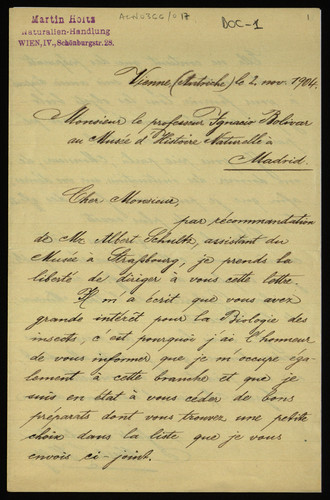 Martin Holtz
Naturalien-Handlung
WIEN, IV., Schönburgstr. 28.
ACN0366/017
DOC-1
1
Vienne (Autriche) le 2. nov. 1904.
Monsieur le professeur Ignacio Bolivar
au Musée d'Histoire Naturelle à
Madrid.
Cher Monsieur,
par récommandation
de Mr. Albert Schultz, assistant du
Musée à Straßbourg, je prends la
liberté de diriger à vous cette lettre.
Il m'a écrit que vous avez
grande intérêt pour la Biologie des
insects, c'est pourquoi j'ai l'honneur
de vous informer que je m'occupe éga-
lement à cette branche et que je
suis en état à vous céder de bons
préparats dont vous trouvez une petite
choix dans la liste que je vous
envois ci-joint.